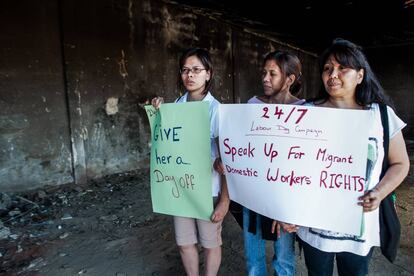 GIVE
her a
Day off
24/7
Labour Day Campaign
Speak Up For Migrant
Domestic Workers RIGHTS